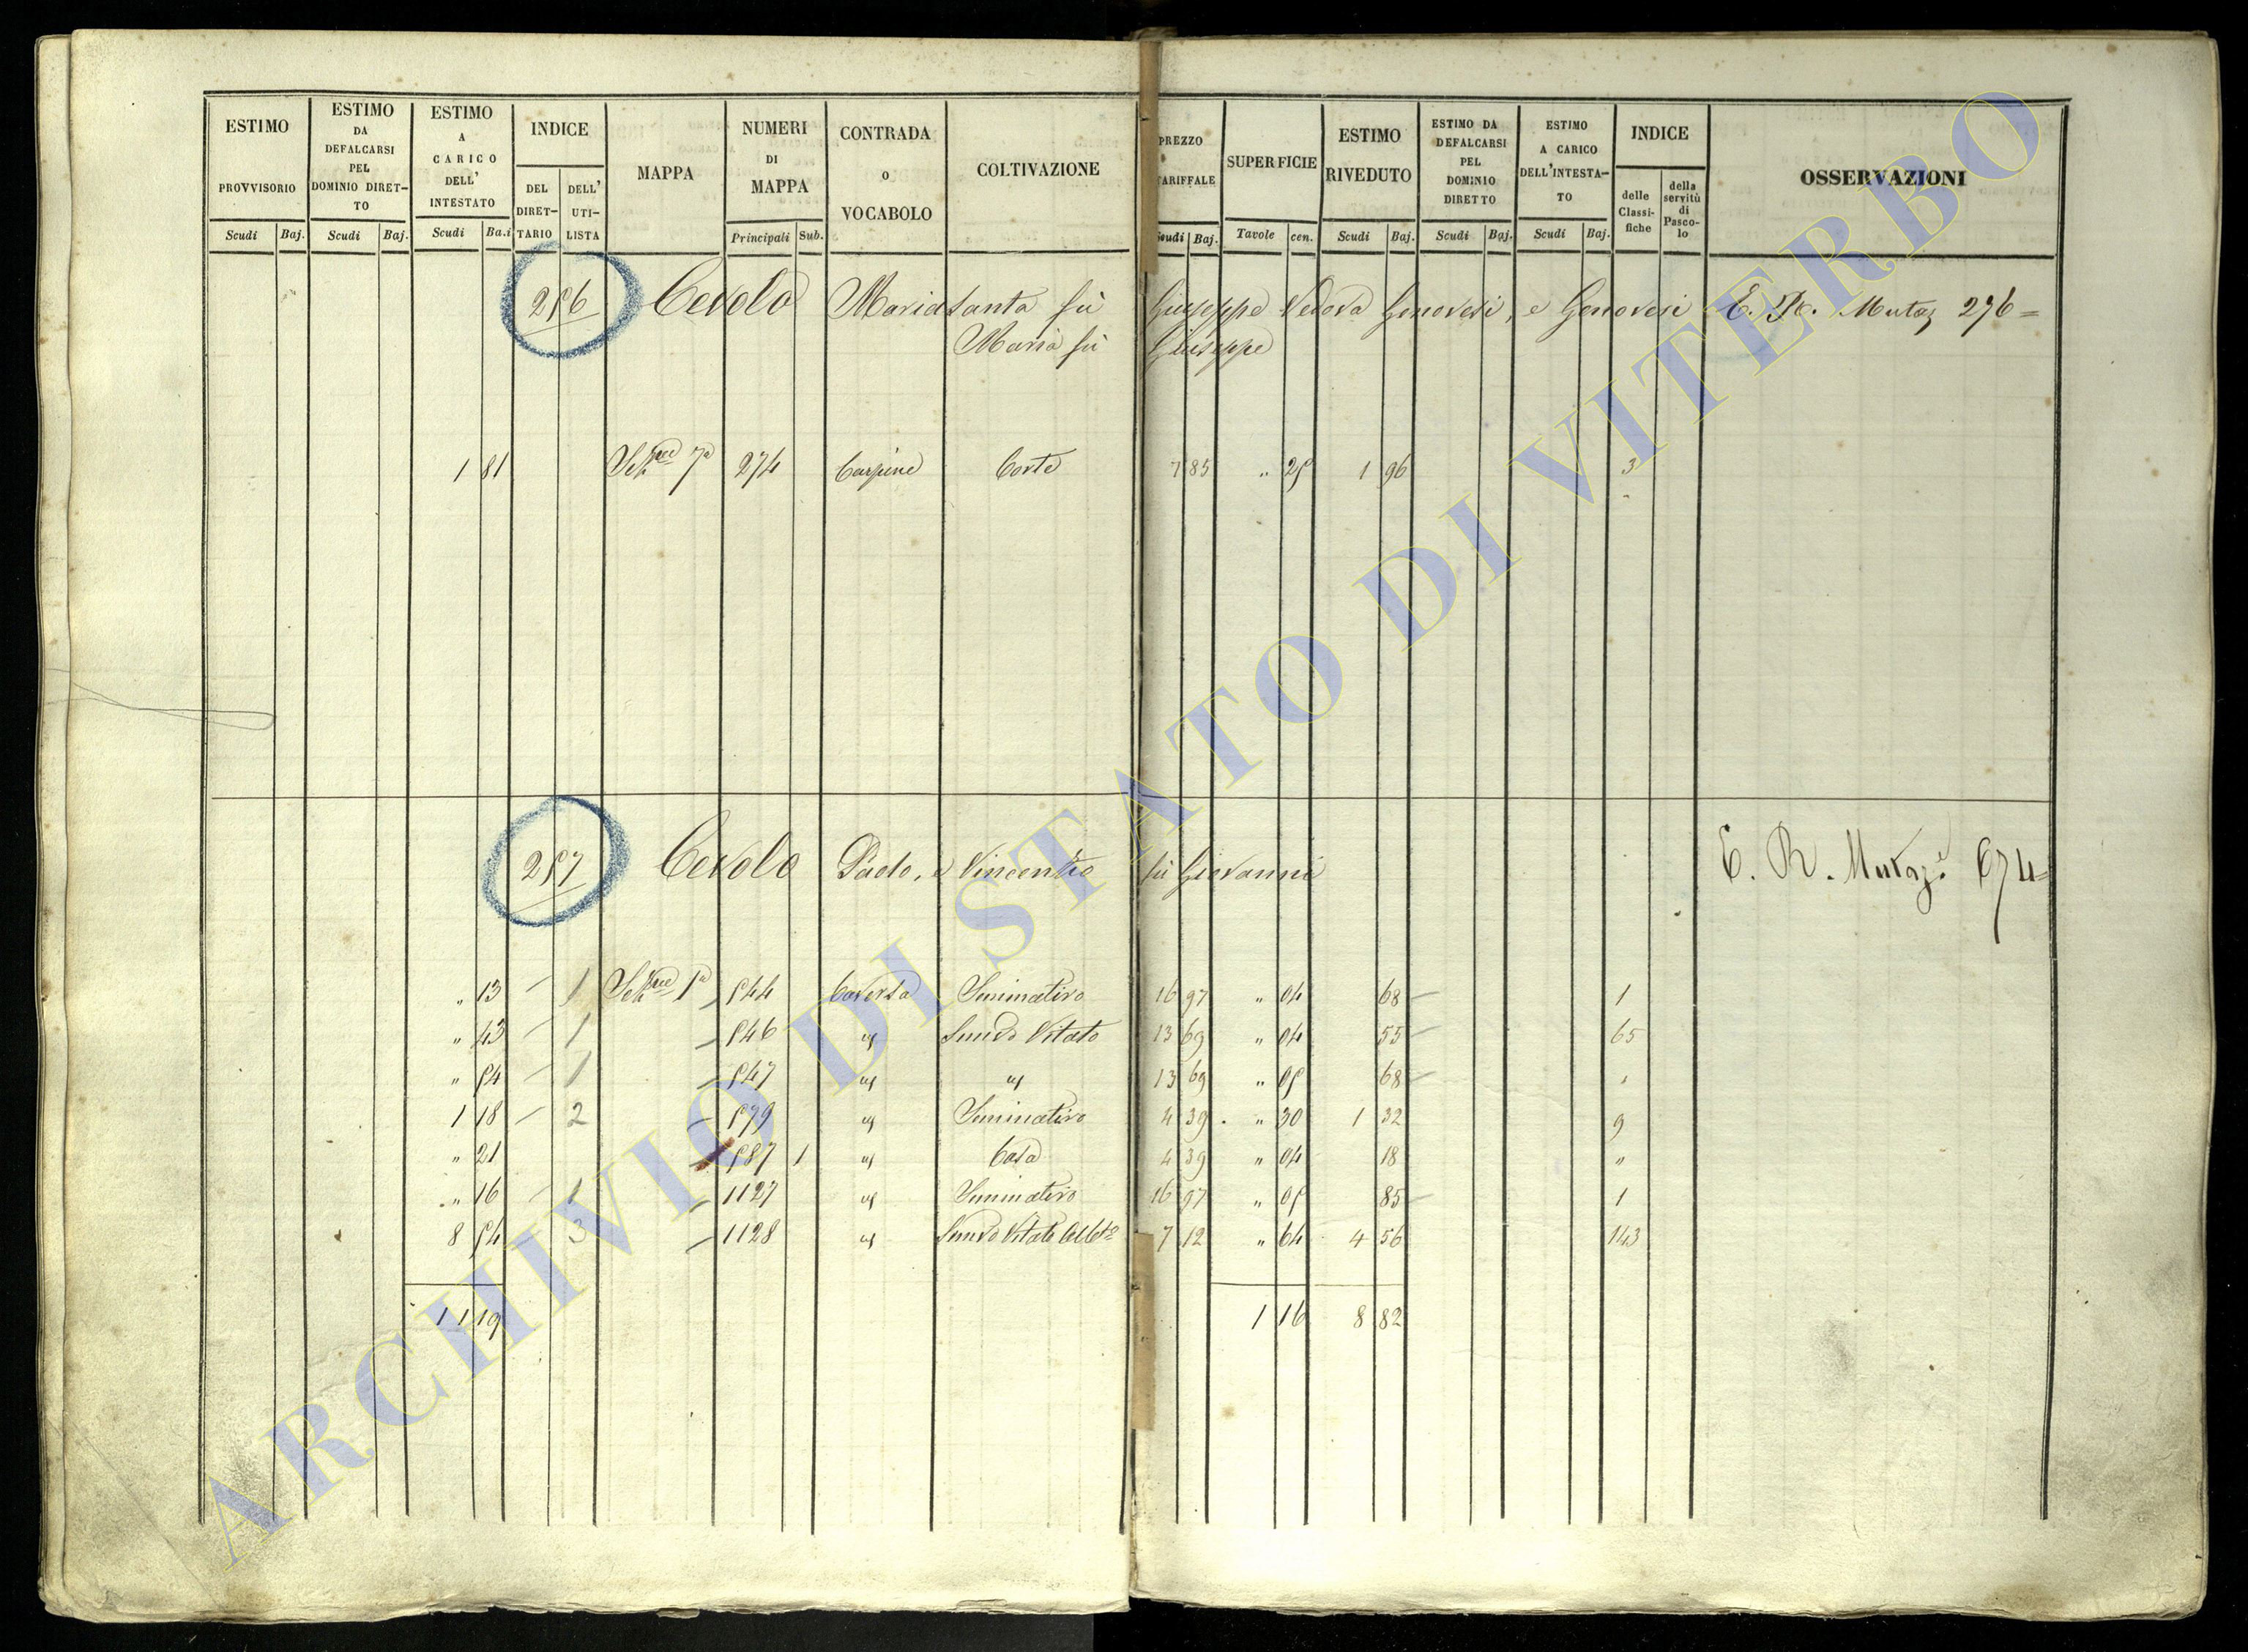 ESTIMO PROVVISORIO Scudi Baj.
ESTIMO DA DEFALCARSI PEL DOMINIO DIRET-TO Scudi Baj.
ESTIMO A CARICO DELL' INTESTATO Scudi Ba.i
INDICE DEL DIRET-TARIO DELL' UTI-LISTA
MAPPA
NUMERI DI MAPPA Principali Sub.
CONTRADA o VOCABOLO
COLTIVAZIONE
PREZZO TARIFFALE Scudi Baj.
SUPERFICIE Tavole cen.
ESTIMO RIVEDUTO Scudi Baj.
ESTIMO DA DEFALCARSI PEL DOMINIO DIRETTO Scudi Baj.
ESTIMO A CARICO DELL'INTESTA-TO Scudi Baj.
INDICE delle Classi-fiche della servitù di Pasco-lo
OSSERVAZIONI
256 Cevolo Mariasanta fù Giuseppe Vedova Genovesi, e Genovesi E. R. Mutaz 276=
Maria fù Giuseppe
1 81 Sezne 7a 274 Carpine Corte 7 85 " 25 1 96 3
257 Cevolo Paolo, e Vincenzo fù Giovanni E. R. Mutaze 674=
" 13 – 1 Sezne 1a 544 Caversa Seminativo 16 97 " 04 68 – 1
" 43 – 1 546 " Semvo Vitato 13 69 " 04 55 – 65
" 54 – 1 547 " " 13 69 " 05 68 – "
1 18 – 2 579 " Seminativo 4 39 " 30 1 32 9
" 21 587 1 " Casa 4 39 " 04 18 "
" 16 – 1 1127 " Seminativo 16 97 " 05 85 – 1
8 54 – 3 1128 " Semvo Vitato 7 12 " 64 4 56 143
11 19 1 16 8 82
ARCHIVIO DI STATO DI VITERBO